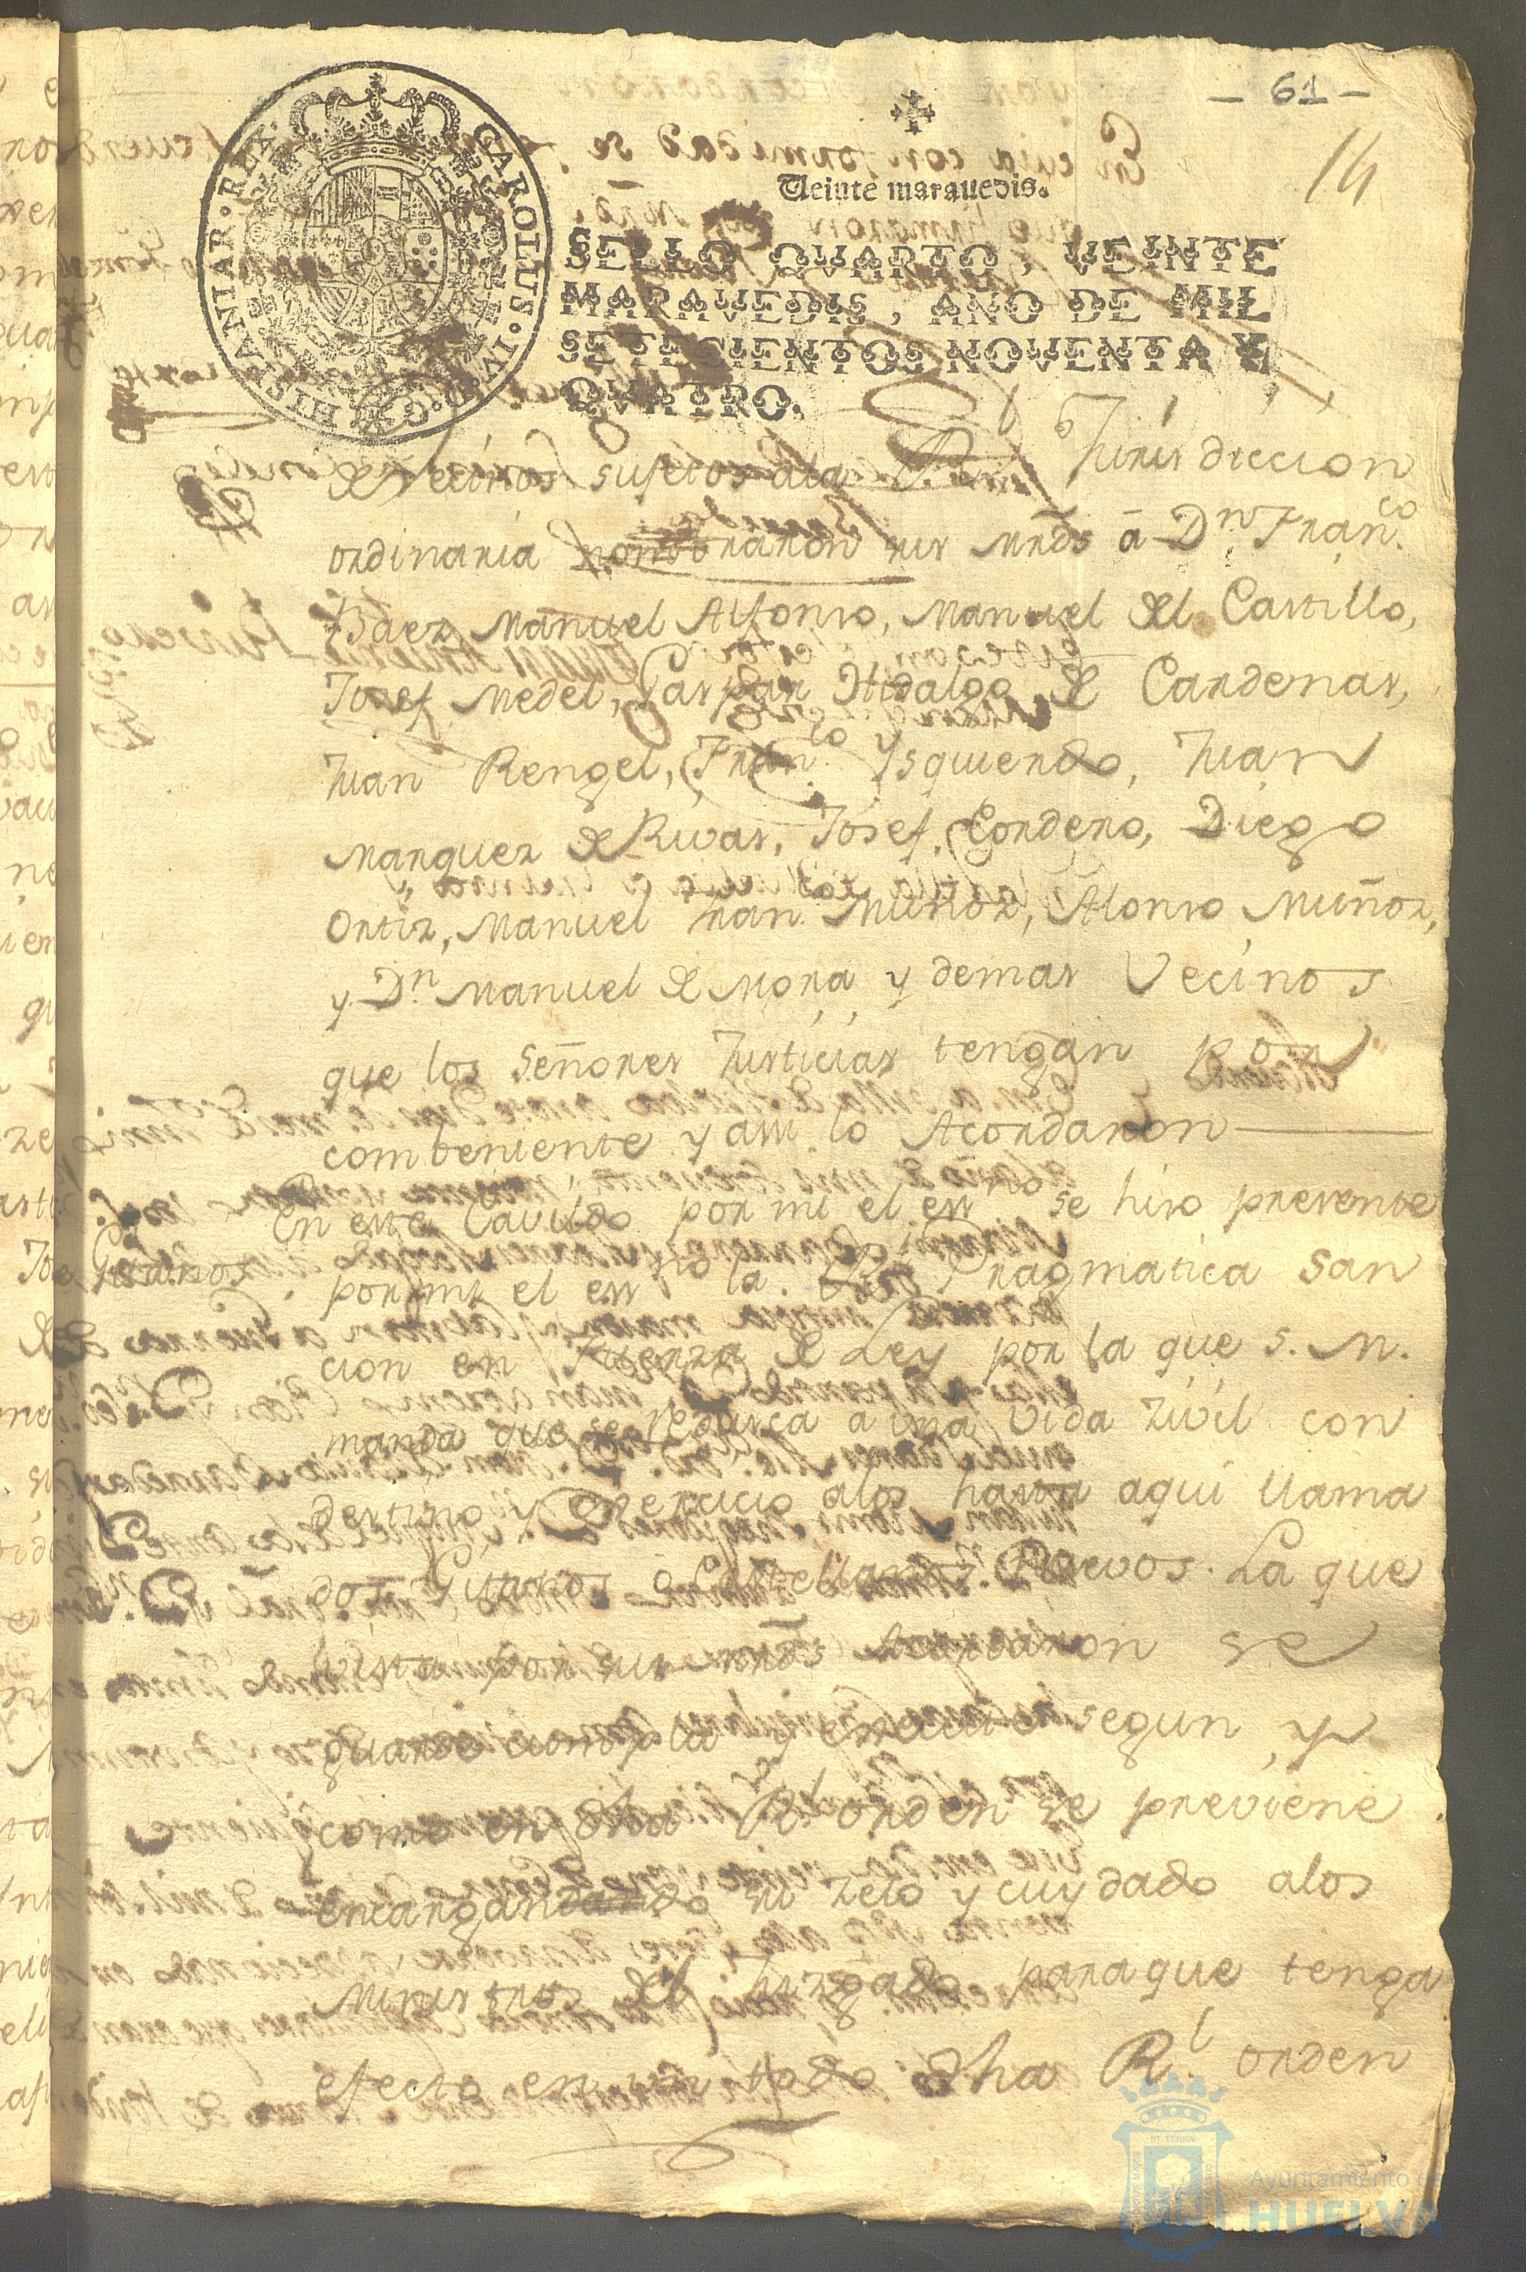 - 61 -
14
CAROLUS · IV · D · G · HISPANIAR · REX ·
Veinte maravedis.
SELLO QVARTO, VEINTE
MARAVEDIS, AÑO DE MIL
SETECIENTOS NOVENTA Y
QVATRO.
de vecinos sujetos ala Rl. Jurisdiccion
ordinaria nombraron sus mrds á Dn Franco.
Baez, Manuel Alfonso, Manuel del Castillo,
Josef Medel, Gaspar Hidalgo de Cardenas,
Juan Rengel, Franco. Ysquierdo, Juan
Marquez de Rivas, Josef Cordero, Diego
Ortiz, Manuel Fran.co Muñoz, Alonso Muñoz,
y Dn Manuel de Mora y demas Vecinos
que los Señores Justicias tengan por
combeniente y assi lo Acordaron
Gitanos
En este Cavildo por mi el essno se hiso presente
por mi el essno la Rl. Pragmatica San
cion en fuerza de Ley por la que S. M.
manda que se redusca a una vida zivil con
destino y exercicio alos hasta aqui llama
dos Gitanos o Castellanos Nuevos. La que
vista por sus mrds Acordaron se
guarde cumpla y execute segun, y
como en dha Rl. orden se previene
encargandando su zelo y cuydado alos
Ministros del Juzgado paraque tenga
efecto en un todo dha Rl. orden
Ayuntamiento de
HUELVA